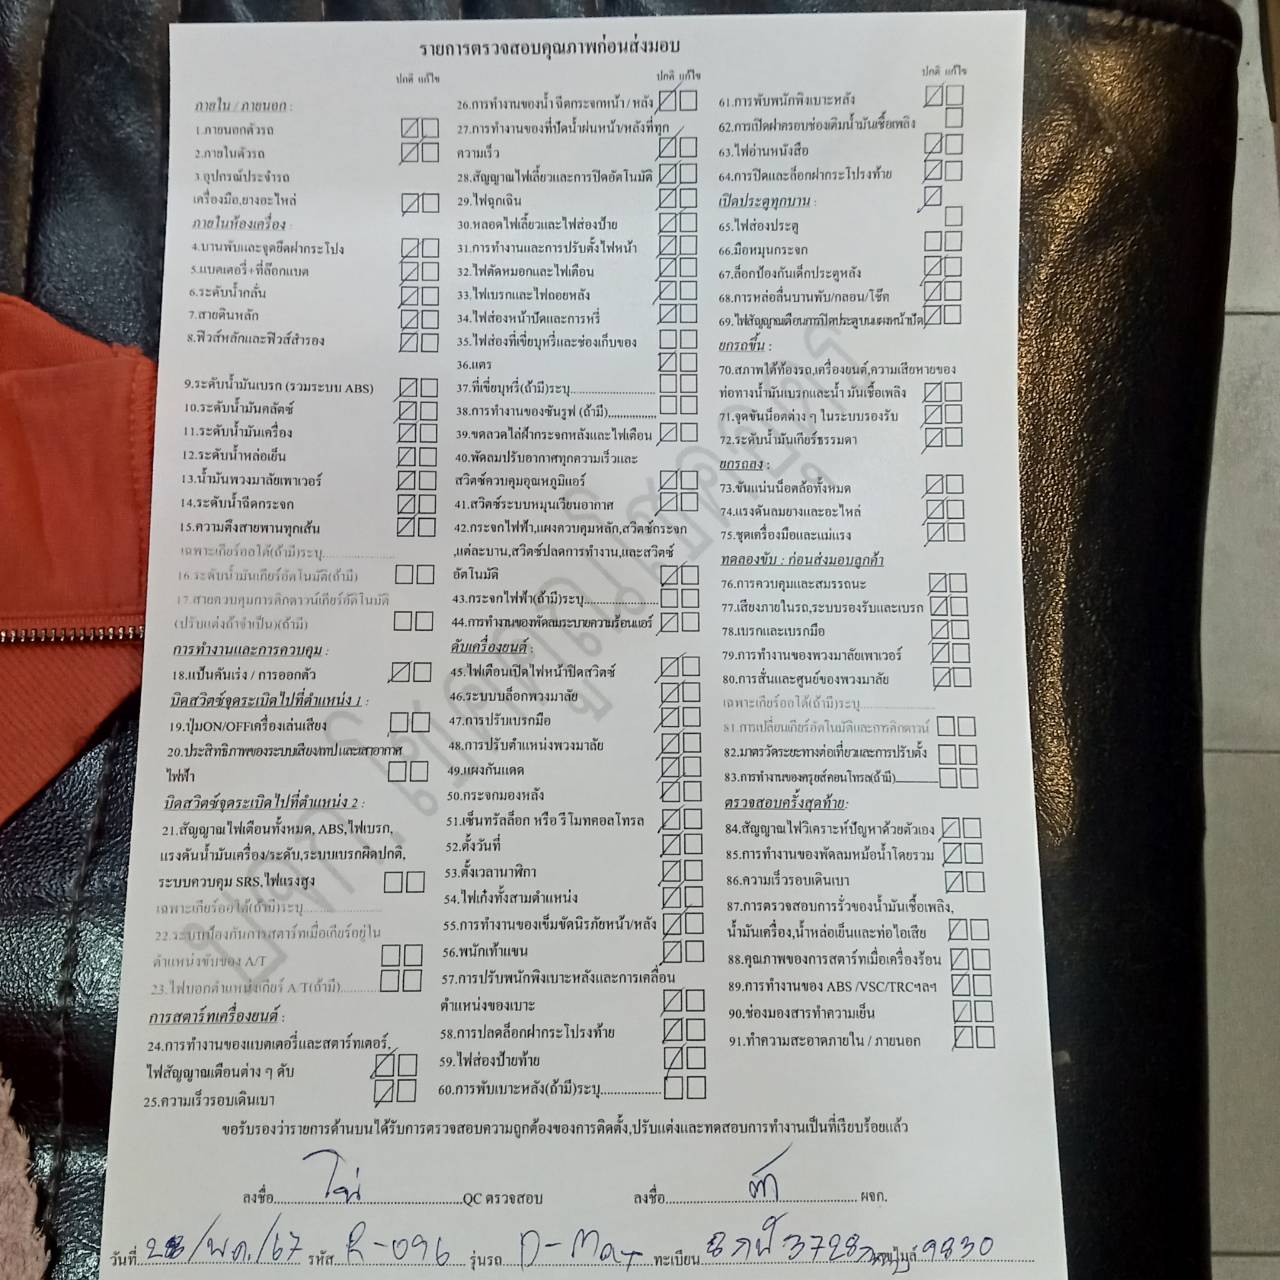 รายการตรวจสอบคุณภาพก่อนส่งมอบ
ปกติ แก้ไข
ภายใน / ภายนอก :
1.ภายนอกตัวรถ
2.ภายในตัวรถ
3.อุปกรณ์ประจำรถ
เครื่องมือ,ยางอะไหล่
ภายในห้องเครื่อง :
4.บานพับและจุดยึดฝากระโปรง
5.แบตเตอรี่+ที่ล็อกแบต
6.ระดับน้ำกลั่น
7.สายดินหลัก
8.ฟิวส์หลักและฟิวส์สำรอง
9.ระดับน้ำมันเบรก (รวมระบบ ABS)
10.ระดับน้ำมันคลัตช์
11.ระดับน้ำมันเครื่อง
12.ระดับน้ำหล่อเย็น
13.น้ำมันพวงมาลัยเพาเวอร์
14.ระดับน้ำฉีดกระจก
15.ความตึงสายพานทุกเส้น
เฉพาะเกียร์ออโต้(ถ้ามี)ระบุ...................
16.ระดับน้ำมันเกียร์อัตโนมัติ(ถ้ามี)
17.สายควบคุมการคิกดาวน์เกียร์อัตโนมัติ
(ปรับแต่งถ้าจำเป็น)(ถ้ามี)
การทำงานและการควบคุม :
18.แป้นคันเร่ง / การออกตัว
บิดสวิตซ์จุดระเบิดไปที่ตำแหน่ง 1 :
19.ปุ่มON/OFFเครื่องเล่นเสียง
20.ประสิทธิภาพของระบบเสียงเทปและเสาอากาศ
ไฟฟ้า
บิดสวิตซ์จุดระเบิดไปที่ตำแหน่ง 2 :
21.สัญญาณไฟเตือนทั้งหมด, ABS,ไฟเบรก,
แรงดันน้ำมันเครื่อง/ระดับ,ระบบเบรกผิดปกติ,
ระบบควบคุม SRS,ไฟแรงสูง
เฉพาะเกียร์ออโต้(ถ้ามี)ระบุ...................
22.ระบบป้องกันการสตาร์ทเมื่อเกียร์อยู่ใน
ตำแหน่งขับของ A/T
23.ไฟบอกตำแหน่งเกียร์ A/T(ถ้ามี)...........
การสตาร์ทเครื่องยนต์ :
24.การทำงานของแบตเตอรี่และสตาร์ทเตอร์,
ไฟสัญญาณเตือนต่าง ๆ ดับ
25.ความเร็วรอบเดินเบา
ปกติ แก้ไข
26.การทำงานของน้ำ ฉีดกระจกหน้า / หลัง
27.การทำงานของที่ปัดน้ำฝนหน้า/หลังที่ทุก
ความเร็ว
28.สัญญาณไฟเลี้ยวและการปิดอัตโนมัติ
29.ไฟฉุกเฉิน
30.หลอดไฟเลี้ยวและไฟส่องป้าย
31.การทำงานและการปรับตั้งไฟหน้า
32.ไฟตัดหมอกและไฟเตือน
33.ไฟเบรกและไฟถอยหลัง
34.ไฟส่องหน้าปัดและการหรี่
35.ไฟส่องที่เขี่ยบุหรี่และช่องเก็บของ
36.แตร
37.ที่เขี่ยบุหรี่(ถ้ามี)ระบุ....................
38.การทำงานของซันรูฟ (ถ้ามี)...............
39.ขดลวดไล่ฝ้ากระจกหลังและไฟเตือน
40.พัดลมปรับอากาศทุกความเร็วและ
สวิตซ์ควบคุมอุณหภูมิแอร์
41.สวิตซ์ระบบหมุนเวียนอากาศ
42.กระจกไฟฟ้า,แผงควบคุมหลัก,สวิตซ์กระจก
,แต่ละบาน,สวิตซ์ปลดการทำงาน,และสวิตซ์
อัตโนมัติ
43.กระจกไฟฟ้า(ถ้ามี)ระบุ....................
44.การทำงานของพัดลมระบายความร้อนแอร์
ดับเครื่องยนต์ :
45.ไฟเตือนเปิดไฟหน้าปิดสวิตซ์
46.ระบบบล็อกพวงมาลัย
47.การปรับเบรกมือ
48.การปรับตำแหน่งพวงมาลัย
49.แผงกันแดด
50.กระจกมองหลัง
51.เซ็นทรัลล็อก หรือ รีโมทคอลโทรล
52.ตั้งวันที่
53.ตั้งเวลานาฬิกา
54.ไฟเก๋งทั้งสามตำแหน่ง
55.การทำงานของเข็มขัดนิรภัยหน้า/หลัง
56.พนักเท้าแขน
57.การปรับพนักพิงเบาะหลังและการเคลื่อน
ตำแหน่งของเบาะ
58.การปลดล็อกฝากระโปรงท้าย
59.ไฟส่องป้ายท้าย
60.การพับเบาะหลัง(ถ้ามี)ระบุ....................
ปกติ แก้ไข
61.การพับพนักพิงเบาะหลัง
62.การเปิดฝาครอบช่องเติมน้ำมันเชื้อเพลิง
63.ไฟอ่านหนังสือ
64.การปิดและล็อกฝากระโปรงท้าย
เปิดประตูทุกบาน :
65.ไฟส่องประตู
66.มือหมุนกระจก
67.ล็อกป้องกันเด็กประตูหลัง
68.การหล่อลื่นบานพับ/กลอน/โช๊ก
69.ไฟสัญญาณเตือนการปิดประตูบนแผงหน้าปัด
ยกรถขึ้น :
70.สภาพใต้ท้องรถ,เครื่องยนต์,ความเสียหายของ
ท่อทางน้ำมันเบรกและน้ำ มันเชื้อเพลิง
71.จุดขันน็อตต่าง ๆ ในระบบรองรับ
72.ระดับน้ำมันเกียร์ธรรมดา
ยกรถลง :
73.ขันแน่นน็อตล้อทั้งหมด
74.แรงดันลมยางและอะไหล่
75.ชุดเครื่องมือและแม่แรง
ทดลองขับ : ก่อนส่งมอบลูกค้า
76.การควบคุมและสมรรถนะ
77.เสียงภายในรถ,ระบบรองรับและเบรก
78.เบรกและเบรกมือ
79.การทำงานของพวงมาลัยเพาเวอร์
80.การสั่นและศูนย์ของพวงมาลัย
เฉพาะเกียร์ออโต้(ถ้ามี)ระบุ...................
81.การเปลี่ยนเกียร์อัตโนมัติและการคิกดาวน์
82.มาตรวัดระยะทางต่อเที่ยวและการปรับตั้ง
83.การทำงานของครุยส์คอนโทรล(ถ้ามี)...........
ตรวจสอบครั้งสุดท้าย:
84.สัญญาณไฟวิเคราะห์ปัญหาด้วยตัวเอง
85.การทำงานของพัดลมหม้อน้ำโดยรวม
86.ความเร็วรอบเดินเบา
87.การตรวจสอบการรั่วของน้ำมันเชื้อเพลิง,
น้ำมันเครื่อง,น้ำหล่อเย็นและท่อไอเสีย
88.คุณภาพของการสตาร์ทเมื่อเครื่องร้อน
89.การทำงานของ ABS /VSC/TRCฯลฯ
90.ช่องมองสารทำความเย็น
91.ทำความสะอาดภายใน / ภายนอก
ขอรับรองว่ารายการด้านบนได้รับการตรวจสอบความถูกต้องของการติดตั้ง,ปรับแต่งและทดสอบการทำงานเป็นที่เรียบร้อยแล้ว
ลงชื่อ....................QC ตรวจสอบ ลงชื่อ.................... ผจก.
วันที่ 28/พ.ค./67 รหัส R-096 รุ่นรถ D-Max ทะเบียน 3728 เลขไมล์ 9830